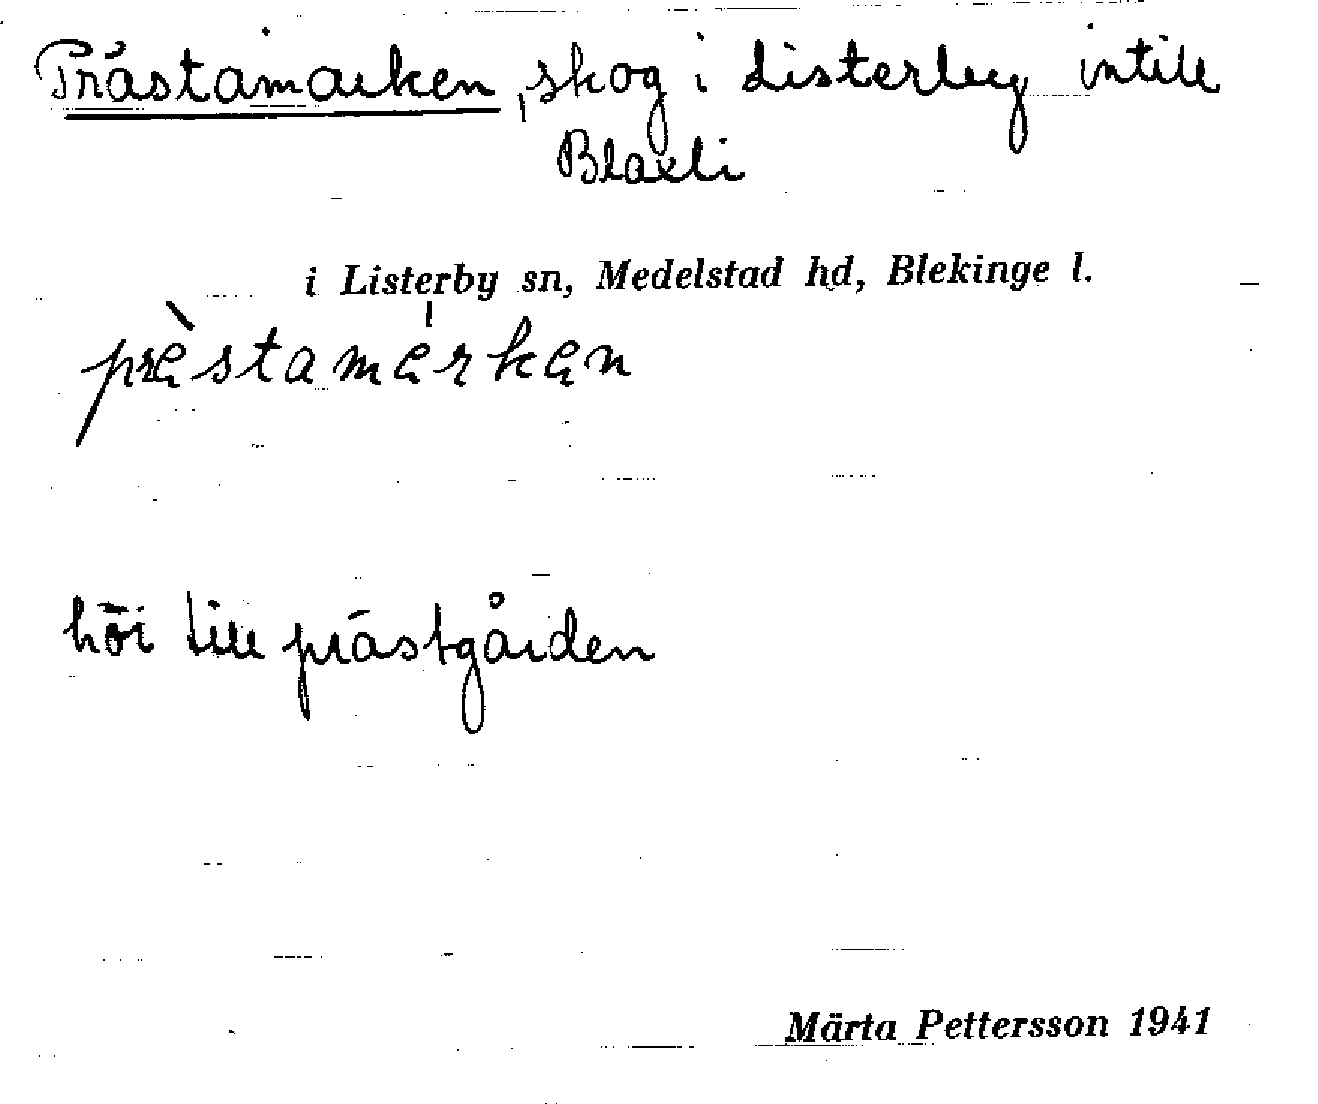 Prästamarken, skog i Listerby intill
Blaxli
i Listerby sn, Medelstad hd, Blekinge l.
prὲstamɑ́rkən
hör till prästgården
Märta Pettersson 1941